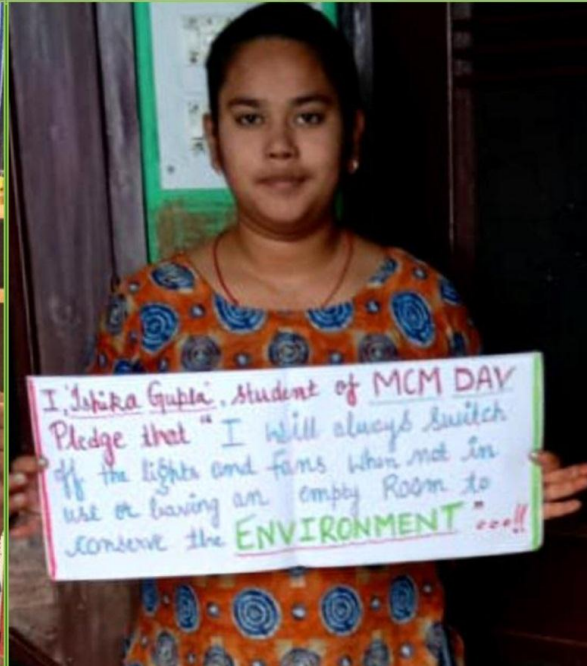 I, 'Ishika Gupta', student of MCM DAV
Pledge that " I will always switch
off the lights and fans when not in
use or leaving an empty Room to
conserve the ENVIRONMENT "...!!